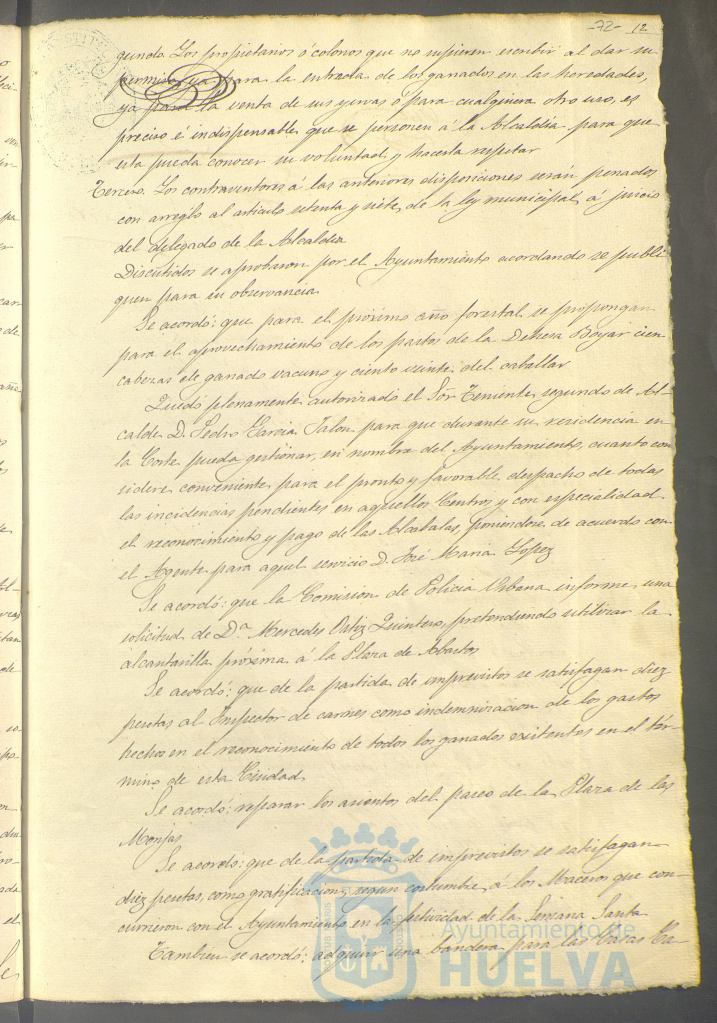 -72- 12
gundo. Los propietarios ó colonos que no supieren escribir al dar su
permiso, ya para la entrada de los ganados en las heredades,
ya para la venta de sus yervas ó para cualquiera otro uso, es
preciso é indispensable que se personen á la Alcaldia para que
esta pueda conocer su voluntad y hacerla respetar
Tercero. Los contraventores á las anteriores disposiciones serán penados
con arreglo al articulo setenta y siete de la ley municipal á juicio
del delegado de la Alcaldia
Discutidos se aprobaron por el Ayuntamiento acordando se publi-
quen para su observancia
Se acordó: que para el próximo año forestal se propongan
para el aprovechamiento de los pastos de la Dehesa Boyar cien
cabezas de ganado vacuno y ciento veinte del caballar
Quedó plenamente autorizado el Sor Teniente segundo de Al-
calde D. Pedro Garcia Jalon para que durante su residencia en
la Corte pueda gestionar, en nombre del Ayuntamiento, cuanto con
sidere conveniente para el pronto y favorable despacho de todas
las incidencias pendientes en aquellos Centros y con especialidad
el reconocimiento y pago de las Alcabalas, poniendose de acuerdo con
el Agente para aquel servicio D. José Maria Lopez
Se acordó: que la Comision de Policia Urbana informe una
solicitud de D.a Mercedes Ortiz Quintero, pretendiendo utilizar la
alcantarilla próxima á la Plaza de Abastos
Se acordó: que de la partida de imprevistos se satisfagan diez
pesetas al Inspector de carnes como indemnizacion de los gastos
hechos en el reconocimiento de todos los ganados existentes en el tér-
mino de esta Ciudad
Se acordó: reparar los asientos del paseo de la Plaza de las
Monjas
Se acordó: que de la partida de imprevistos se satisfagan
diez pesetas, como gratificacion, segun costumbre, á los Maceros que con-
currieron con el Ayuntamiento en la festividad de la Semana Santa
Tambien se acordó: adquirir una bandera para las Casas Ca-
Ayuntamiento de
HUELVA